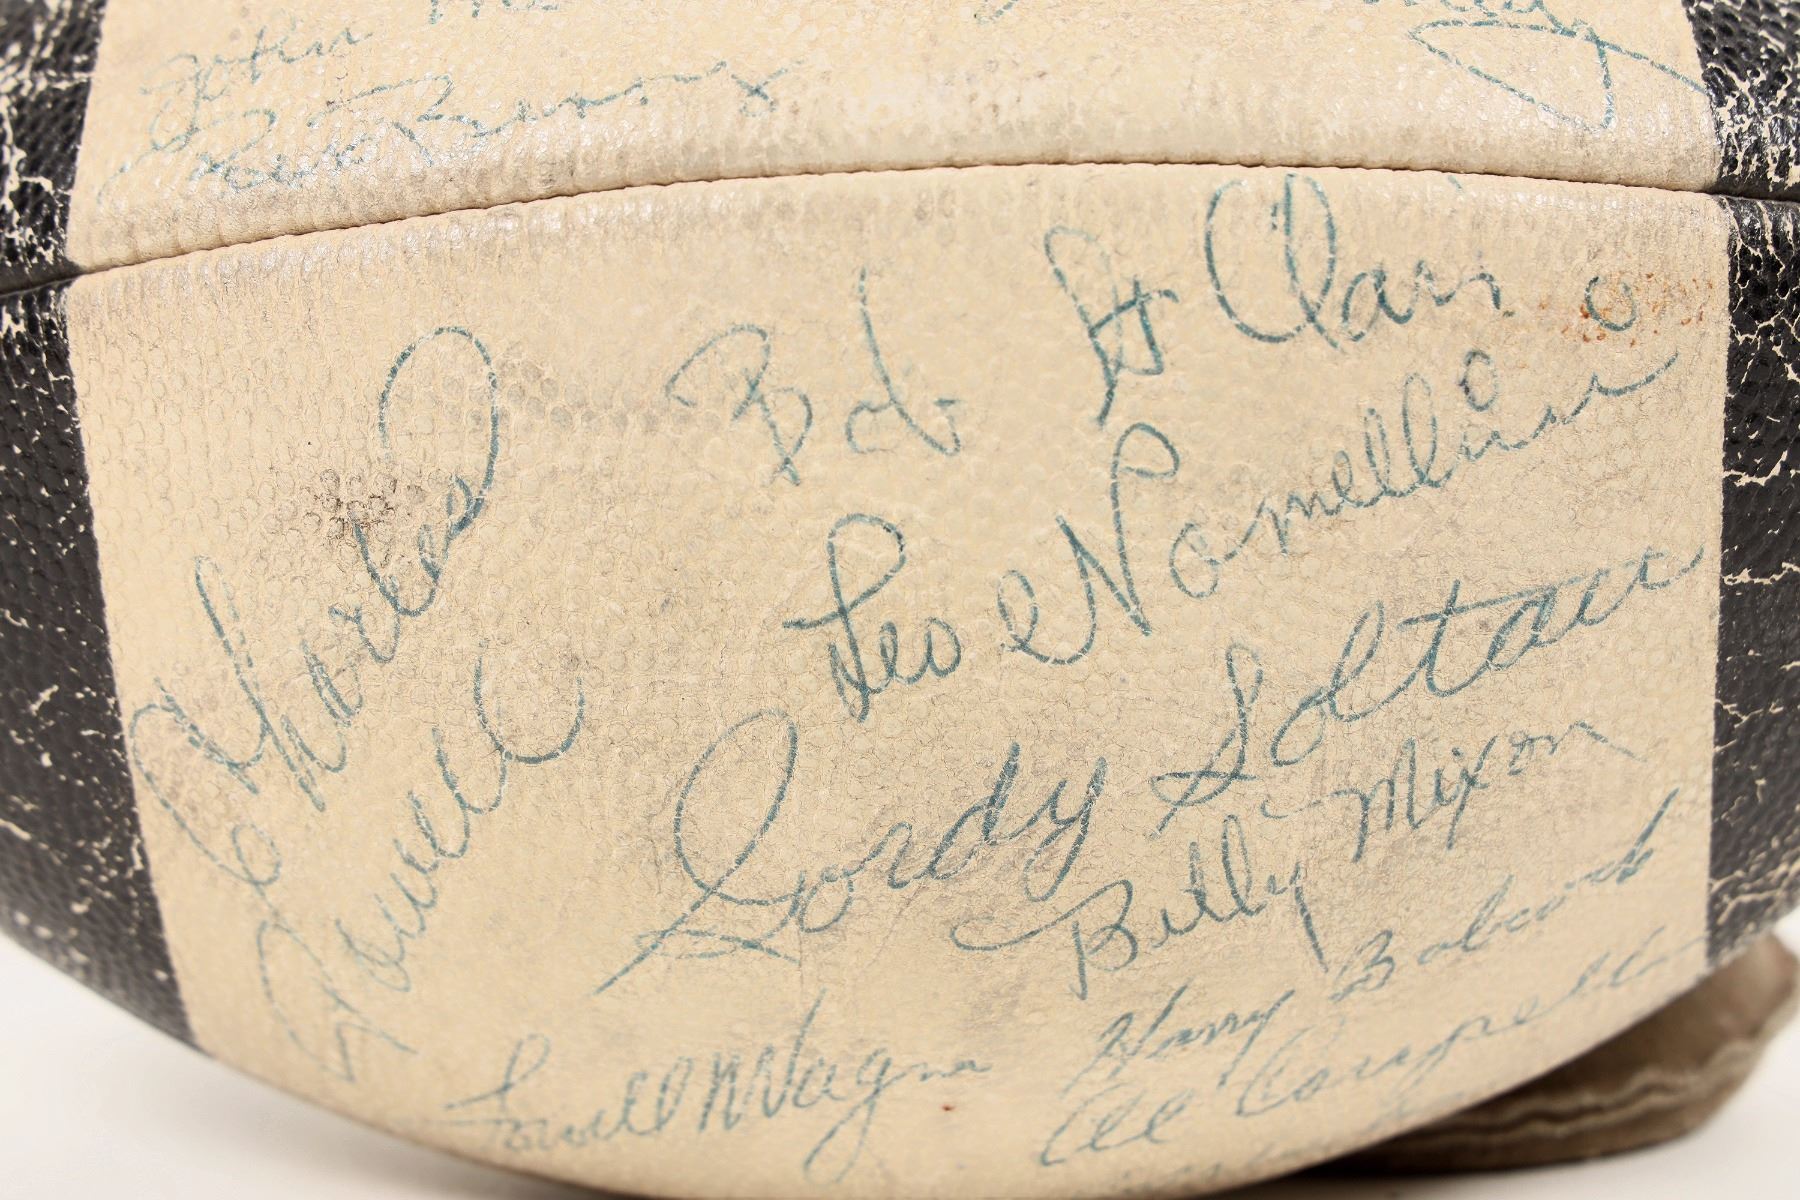 John
Bob St. Clair
Leo Nomellini
Charles Powell
Gordy Soltau
Billy Mixon
Harry Babcock
Lowell Wagner
Al Carapella